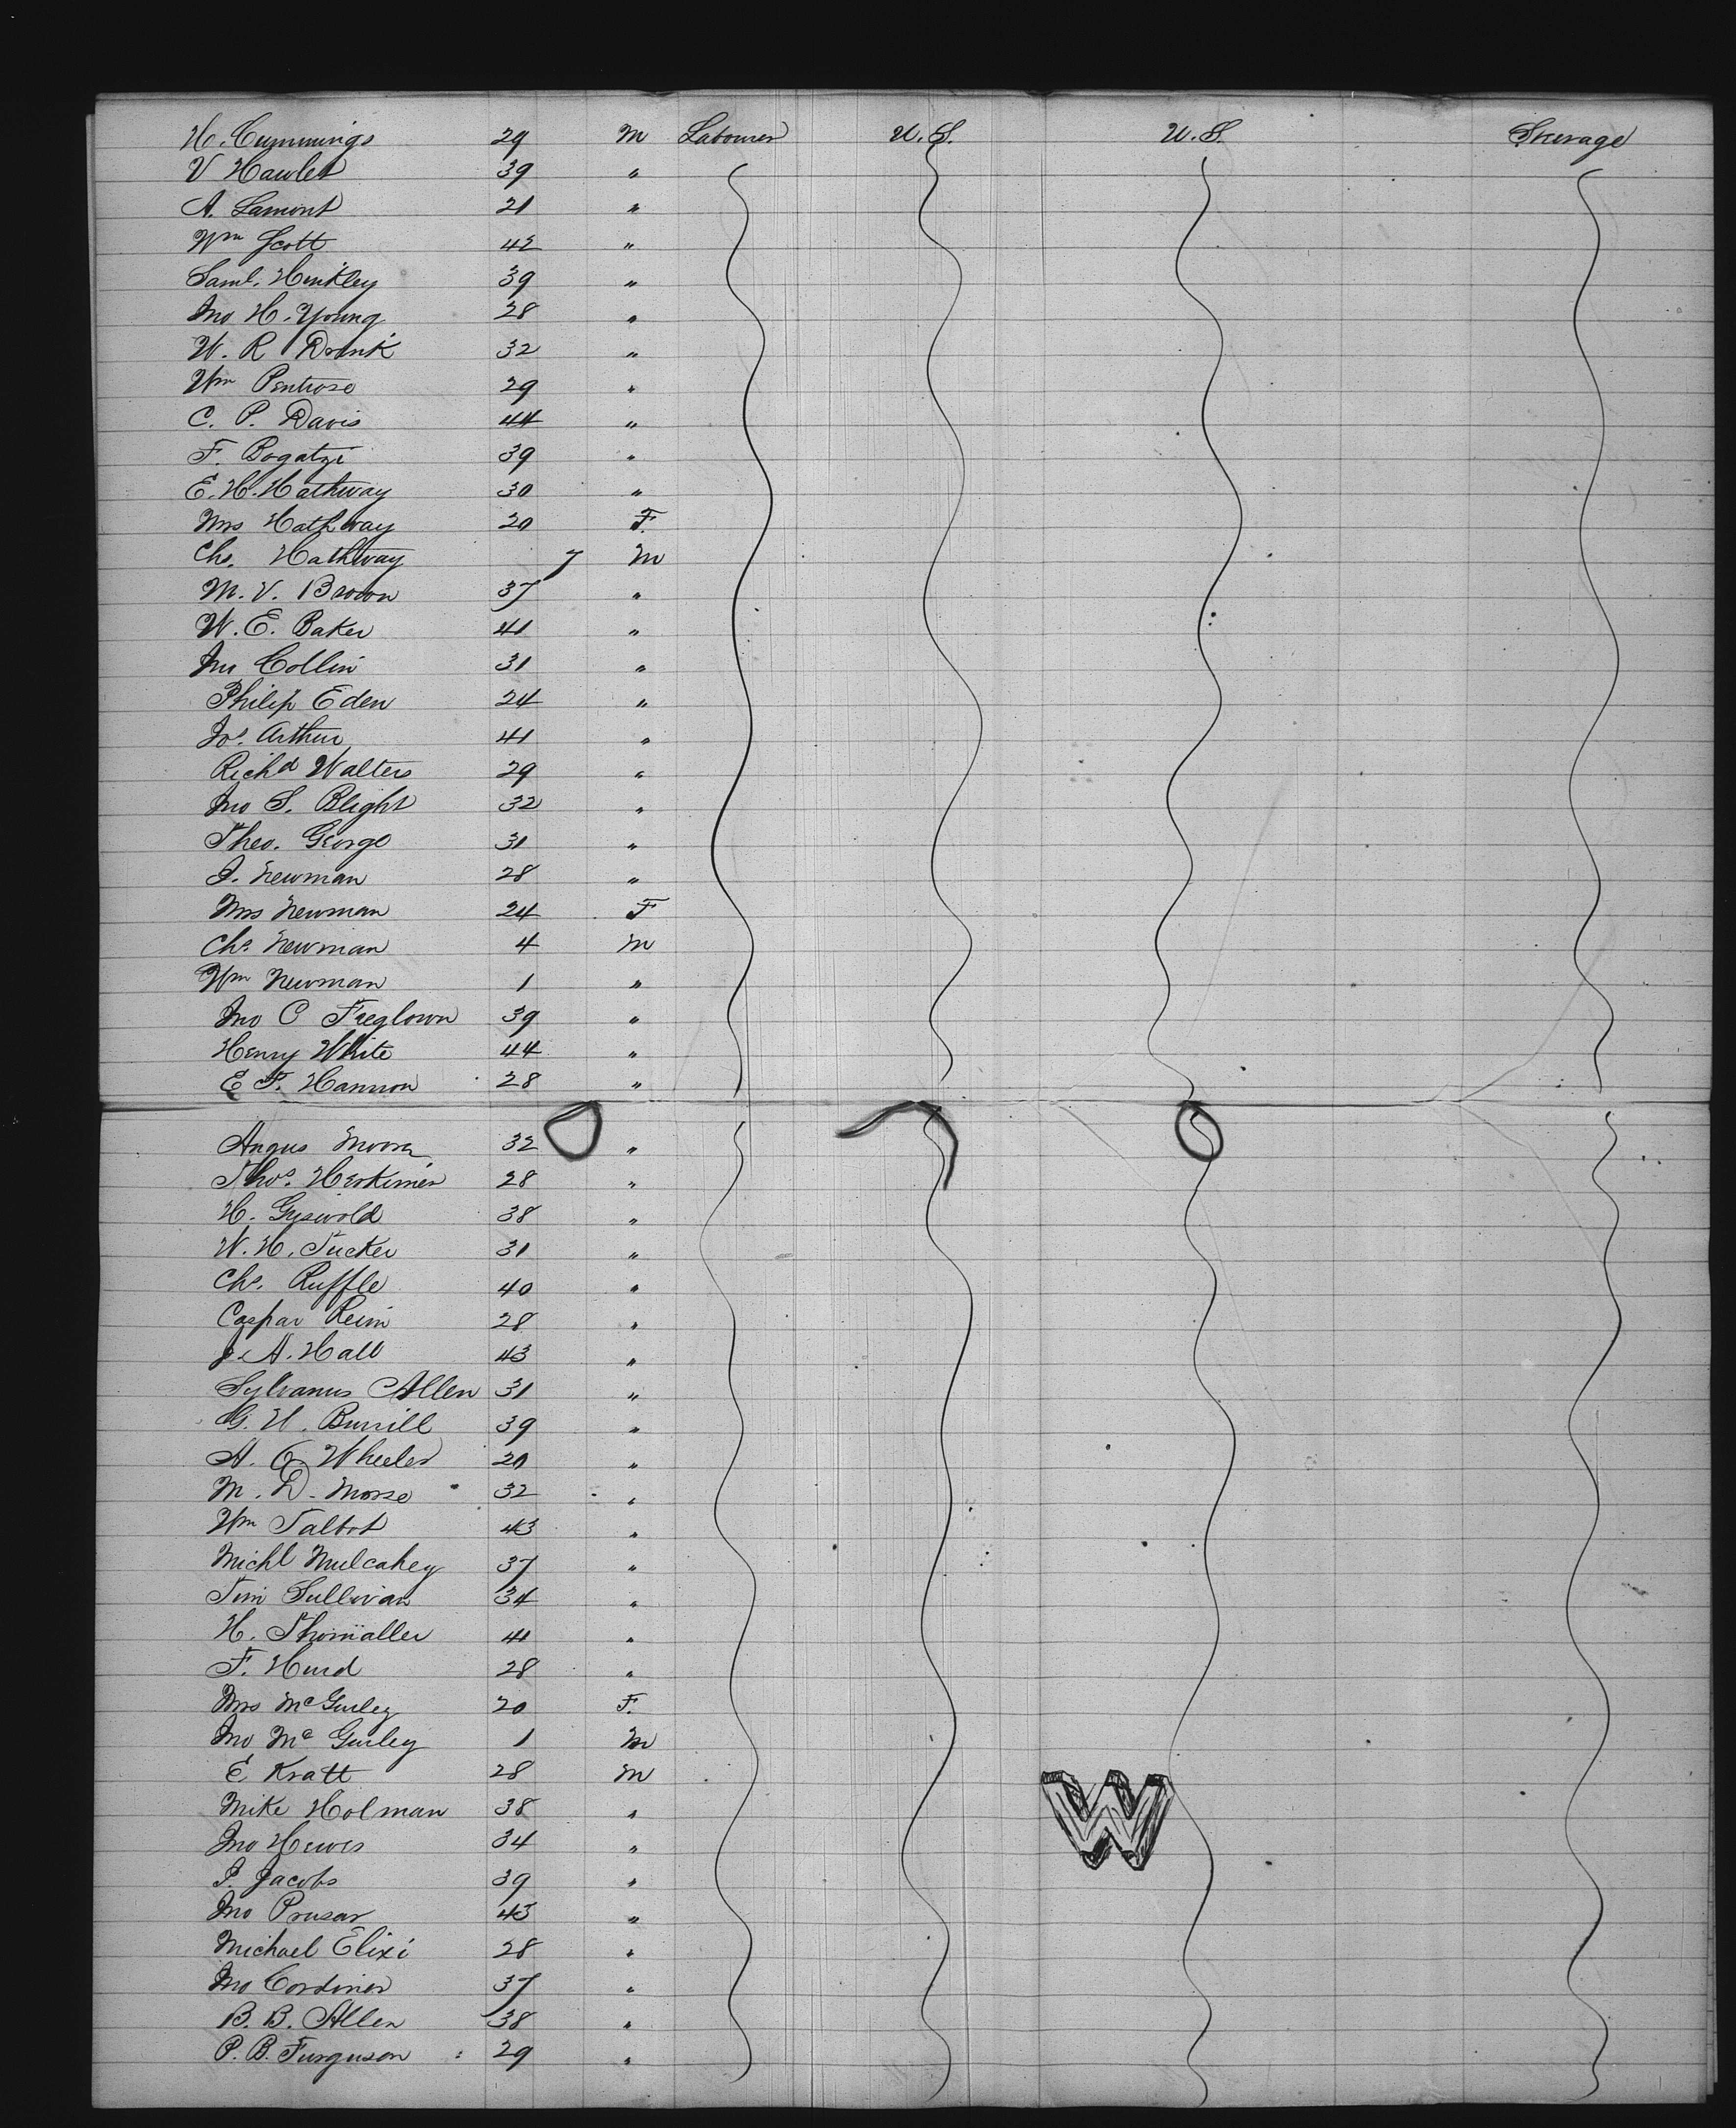 H. Cummings 29 M Labourer U.S. U.S. Steerage
V Hawlet 39 "
A. Lamont 21 "
Wm Scott 42 "
Saml. Hinkley 39 "
Jno H. Young 28 "
W. R Drink 32 "
Wm Pentrose 29 "
C. P. Davis 44 "
F. Bogatzi 39 "
E. H. Hathway 30 "
Mrs Hathway 20 F.
Chs. Hathway 7 M
M. V. Brown 37 "
W. E. Baker 41 "
Jno Collin 31 "
Philip Eden 24 "
Jos. Arthur 41 "
Richd Walters 29 "
Jno S. Blight 32 "
Theo. George 31 "
J. Newman 28 "
Mrs Newman 24 F
Chs. Newman 4 M
Wm Newman 1 "
Jno C Treglown 39 "
Henry White 44 "
E F. Hannon 28 "
Angus Moore 32 "
Thos. Herkimer 28 "
H. Griswold 38 "
W. H. Tucker 31 "
Chs. Ruffle 40 "
Caspar Reim 28 "
J. A. Hall 43 "
Sylvanus Allen 31 "
G. W. Burrill 39 "
A. G Wheeler 20 "
M. D. Morse 32 "
Wm Talbot 43 "
Michl Mulcahey 37 "
Tim Sullivan 34 "
H. Thomaller 41 "
F. Hurd 28 "
Mrs McGurley 20 F.
Jno Mc Gurley 1 M
E Kratt 28 M
Mike Holman 38 "
Jno Hewes 34 "
P. Jacobs 39 "
Jno Prusar 43 "
Michael Elixi 28 "
Jno Cordiner 37 "
B. B. Allen 38 "
P. B. Furguson 29 "
W